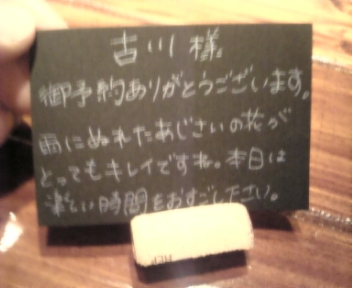 古川様
御予約ありがとうございます。
雨にぬれたあじさいの花が
とってもキレイですね。本日は
楽しい時間をおすごし下さい。